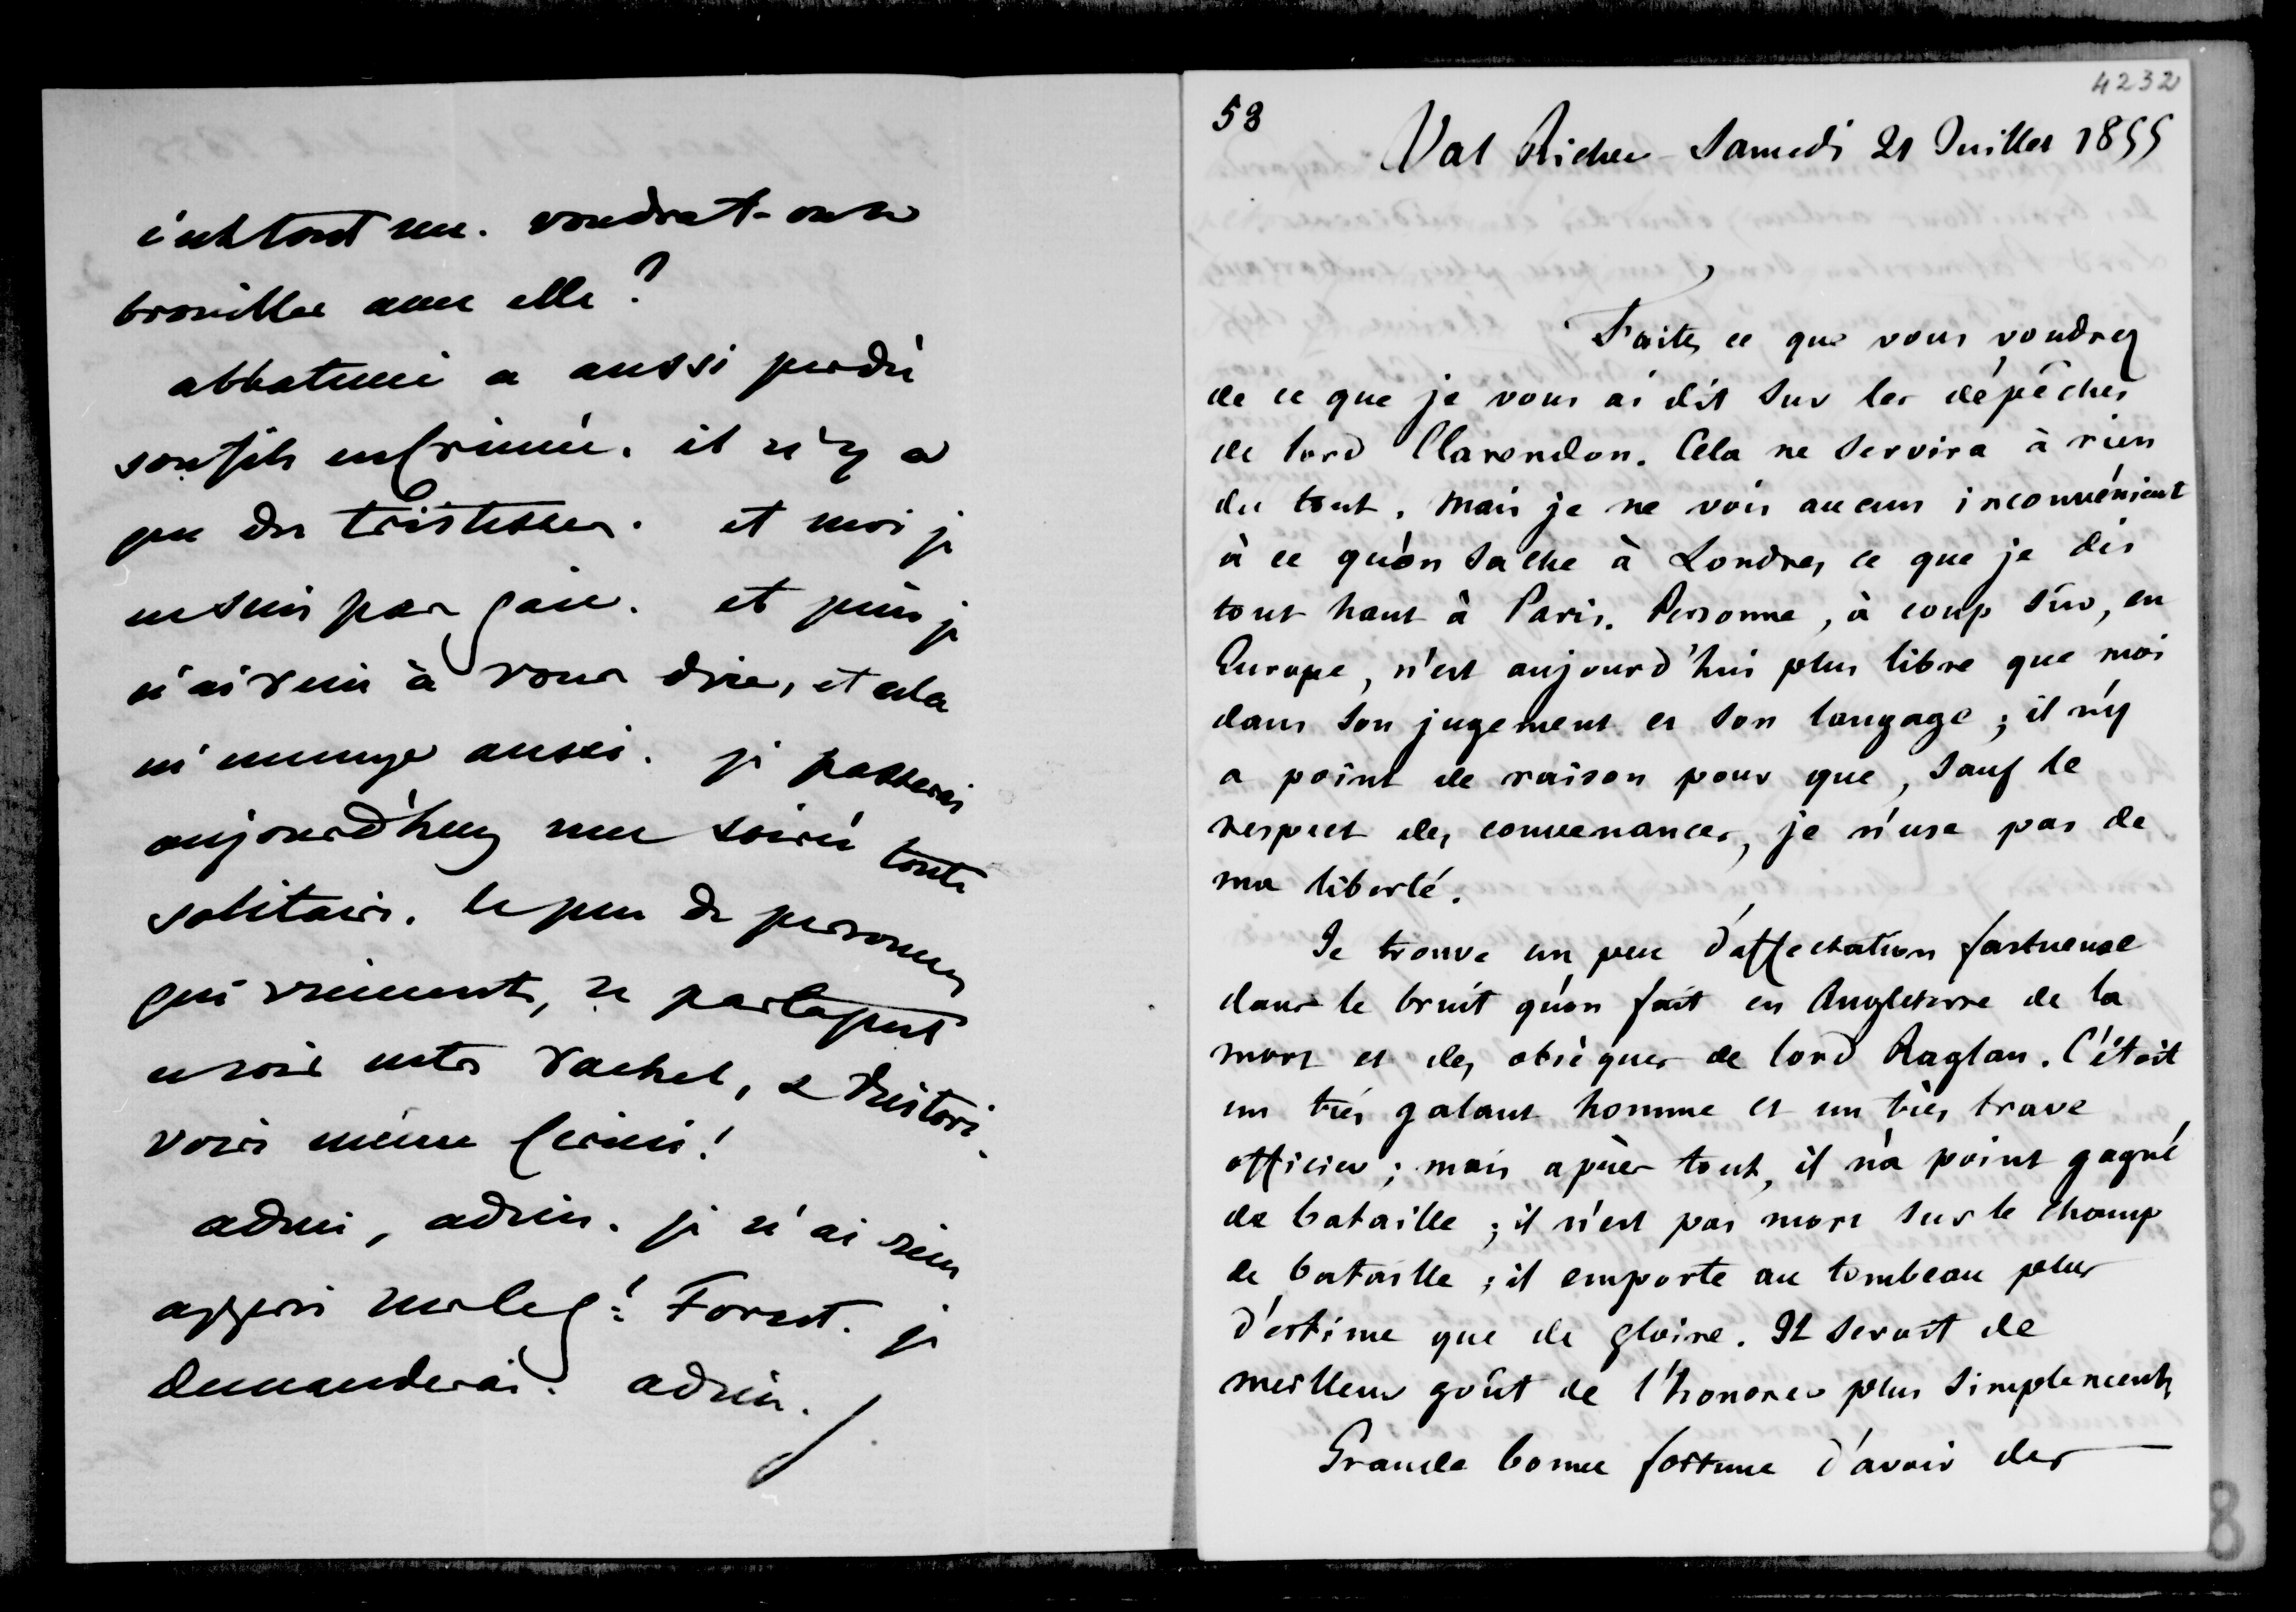 c'est tout un. voudrait-on se
brouiller avec elle ?
abbatucci a aussi perdu
son fils en Crimée. il n'y a
que des tristesses. et moi je
ne suis pas gaie. et puis je
n'ai rien à vous dire, et cela
m'ennuye aussi. je passerai
aujourd'huy une soirée toute
solitaire. le peu de personnes
qui viennent, se partagent
ce soir entre Rachel, & Ristori.
voir même Cerini !
adieu, adieu. je n'ai rien
appris sur le Gal Forest. je
demanderai. adieu.
4232
58
Val Richer - Samedi 21 Juillet 1855
Faites ce que vous voudrez
de ce que je vous ai dit sur les dépêches
de lord Clarendon. Cela ne servira à rien
du tout, mais je ne vois aucun inconvénient
à ce qu'on sache à Londres ce que je dis
tout haut à Paris. Personne, à coup sûr, en
Europe, n'est aujourd'hui plus libre que moi
dans son jugement et son langage ; il n'y
a point de raison pour que, sauf le
respect des convenances, je n'use pas de
ma liberté.
Je trouve un peu d'affectation fastueuse
dans le bruit qu'on fait en Angleterre de la
mort et des obsèques de lord Raglan. C'étoit
un très galant homme et un très brave
officier ; mais après tout, il n'a point gagné
de bataille ; il n'est pas mort sur le champ
de bataille ; il emporte au tombeau plus
d'estime que de gloire. Il seroit de
meilleur goût de l'honorer plus simplement.
Grande bonne fortune d'avoir des
8